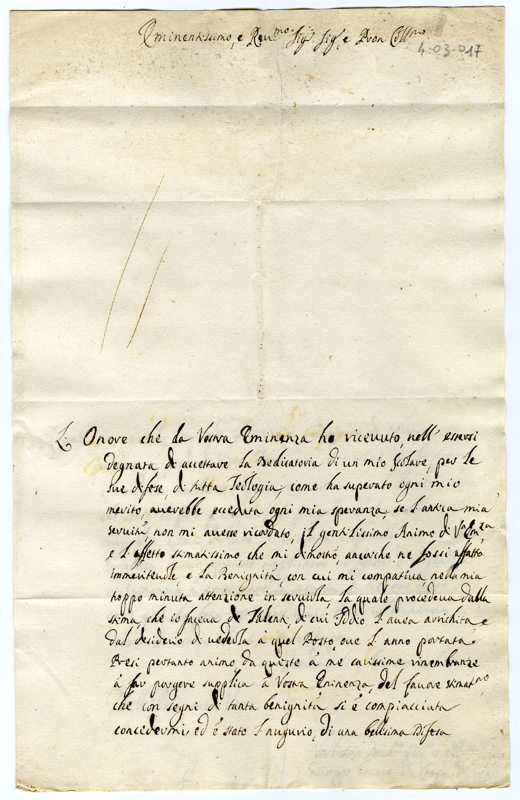 Eminentissimo, e Rev.mo Sig.r Sig.r, e Pron Coll.mo
4-03-017
L' Onore che da Vostra Eminenza ho ricevuto, nell' essersi
degnata di accettare la Dedicatoria di un mio Scolare, per le
sue difese, di tutta Teologia, come ha superato ogni mio
merito, averebbe ecceduta ogni mia speranza, se l'antica mia
servitù non mi avesse ricordato, il gentilissimo Animo di V.a Em.za
e l' affetto stimatissimo, che mi dimostrò, ancorche ne fossi affatto
immeritevole, e la Benignità con cui mi compativa, nella mia
troppo minuta attenzione in servirla, la quale procedeva dalla
stima, che io faceva de Talenti, di cui Iddio l'avea arrichita e
dal desiderio di vederla a quel Posto, ove l' anno portata.
Presi pertanto animo da queste à me carissime rimembranze
à far porgere supplica à Vostra Eminenza, del favore stimat.mo
che con segni di tanta benignità si è compiacciuta
concedermi ed è stato l'augurio, di una bellissima Difesa